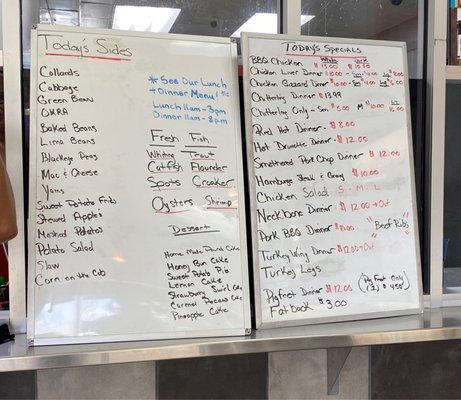 Today's Sides
Collards
Cabbage
Green Bean
OKRA
Baked Beans
Lima Beans
Blackeye Peas
Mac & Cheese
Yams
Sweet Potato Fries
Stewed Apples
Mashed Potatos
Potato Salad
Slaw
Corn on the Cob
* See Our Lunch
+ Dinner Menu!
Lunch 11am-3pm
Dinner 11am-8pm
Fresh Fish
Whiting Trout
Catfish Flounder
Spots Croaker
Oysters Shrimp
Dessert
Home Made Pound Cake
Honey Bun Cake
Sweet Potato Pie
Lemon Cake
Strawberry Swirl Cake
Caramel Pound Cake
Pineapple Cake
Today's Specials
BBQ Chicken White $13.00 Dark $10.50
Chicken Liver Dinner
Chicken Gizzard Dinner
Chitterling Dinner $13.99
Chitterling Only - Sm
Red Hot Dinner - $8.00
Hot Drumette Dinner - $12.00
Smothered Pork Chop Dinner $12.00
Hamburger Steak & Gravy $10.00
Chicken Salad S - M - L
Neckbone Dinner $12.00 + Out
Pork BBQ Dinner
"Beef Ribs"
Turkey Wing Dinner $12.00 + Out
Turkey Legs
Pigfeet Dinner $12.00 (Pig Feet Only
Fat Back $3.00